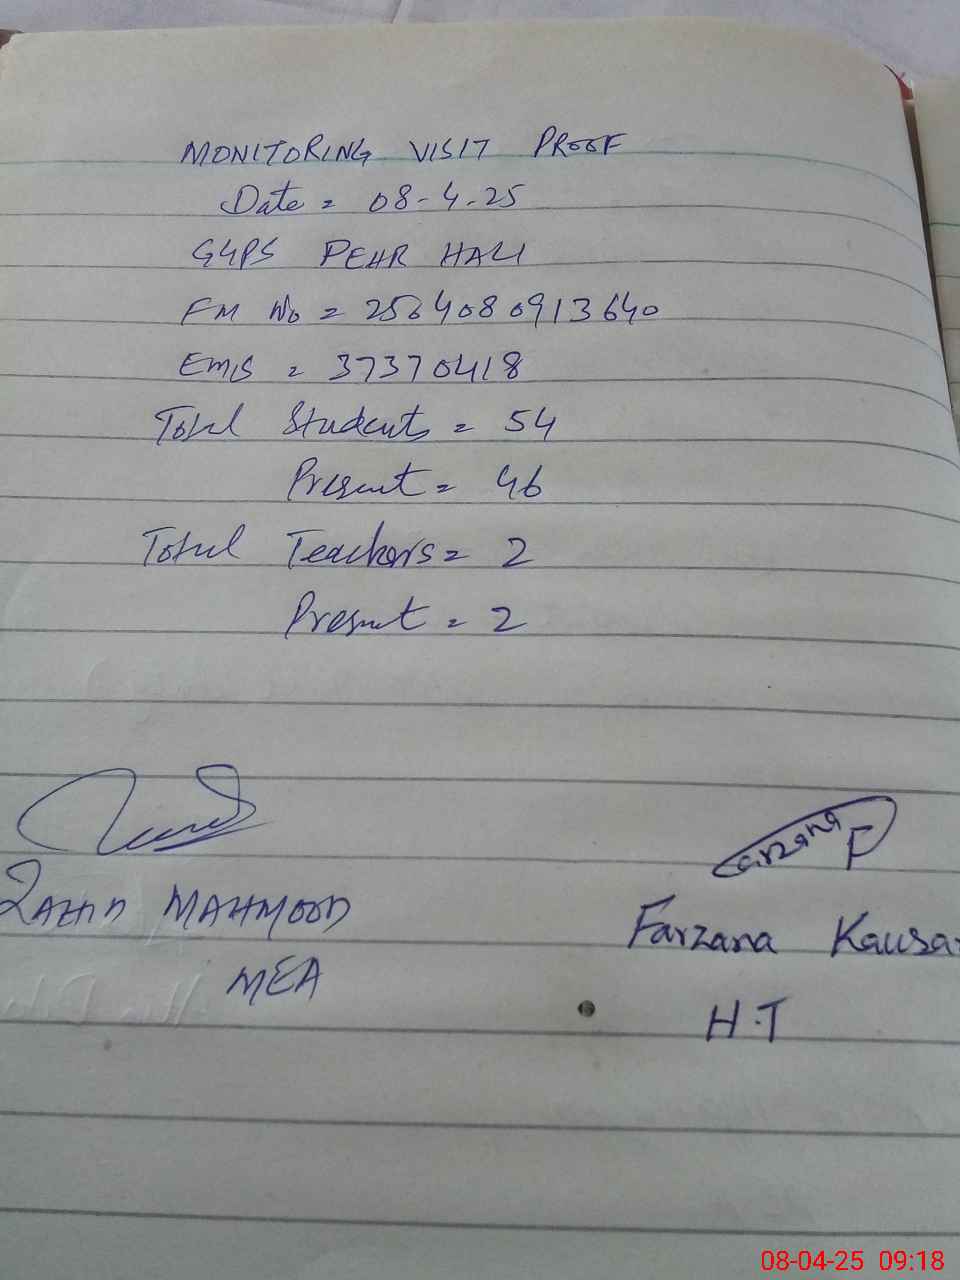 MONITORING VISIT PROOF
Date = 08-4-25
GGPS PEHR HALI
FM No = 2564080913640
EMIS = 37370418
Total Students = 54
Present = 46
Total Teachers = 2
Present = 2
Farzana F
MAHMOOD
Farzana Kausar
MEA
H.T
08-04-25 09:18